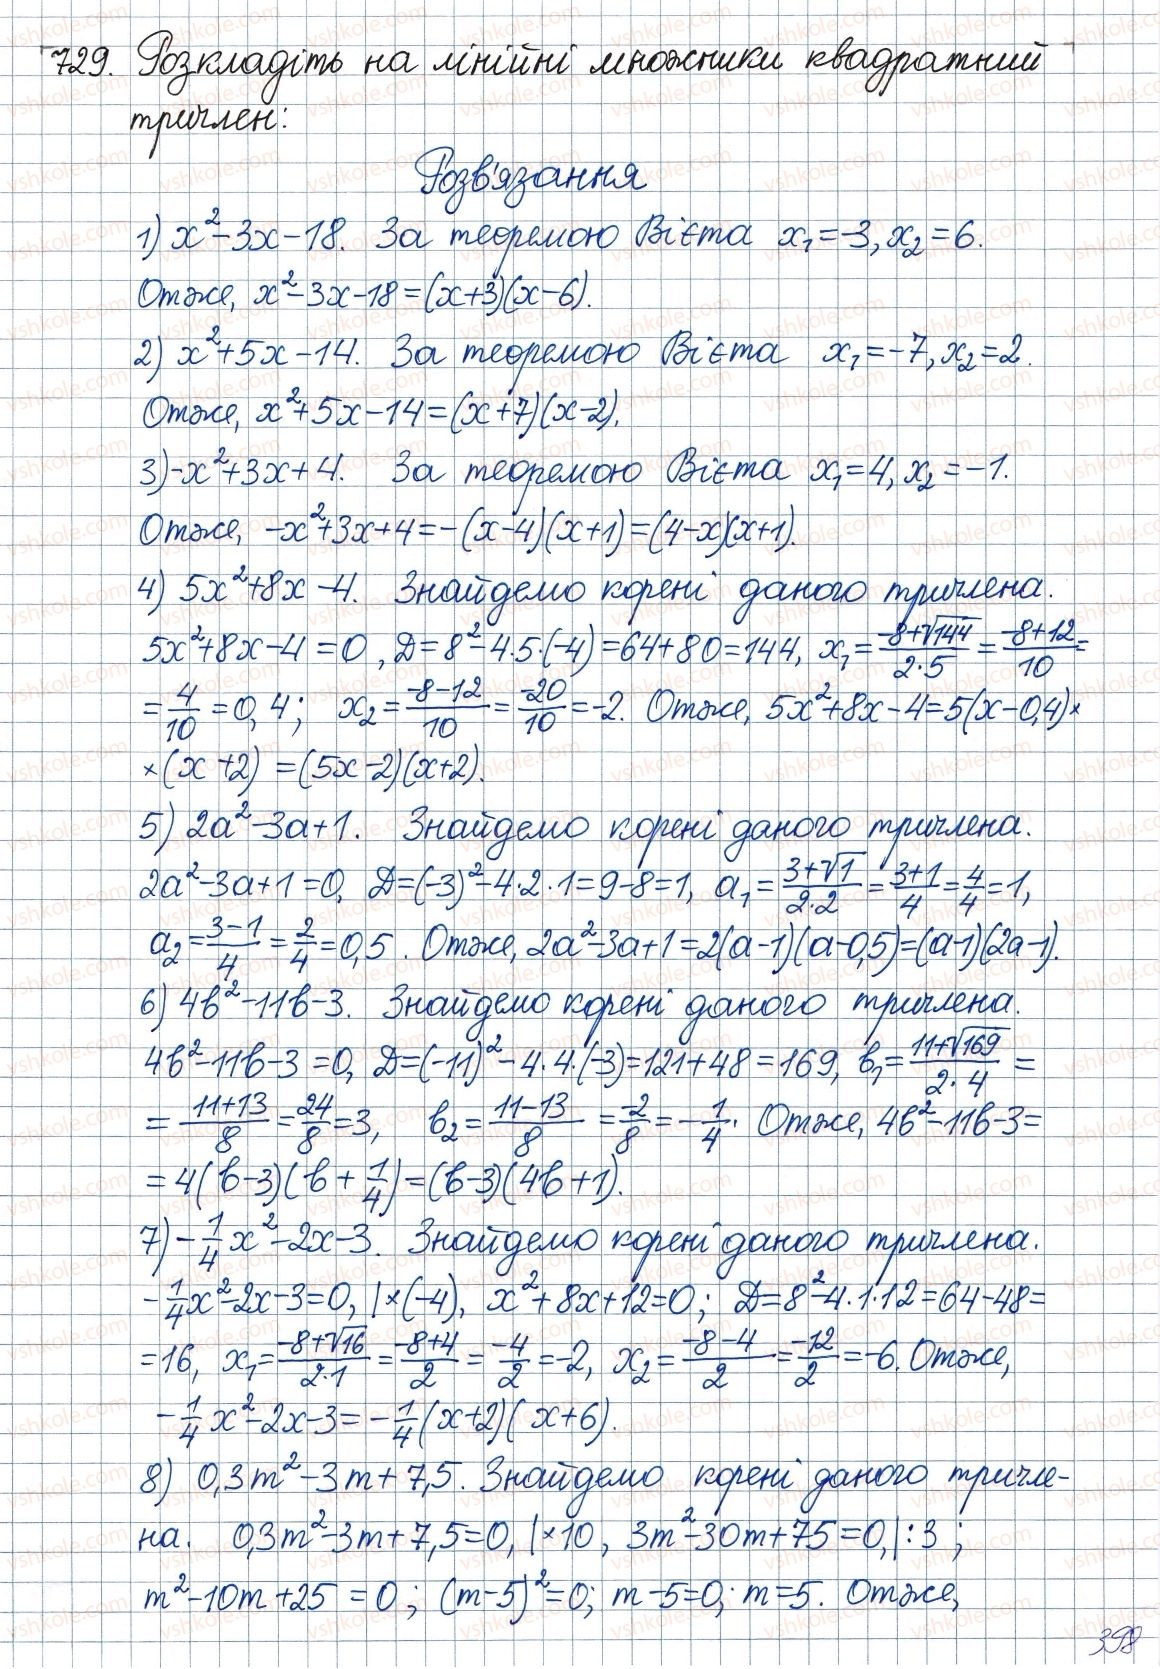 729. Розкладіть на лінійні множники квадратний
тричлен:
Розв'язання
1) x²-3x-18. За теоремою Вієта x₁=-3, x₂=6.
Отже, x²-3x-18=(x+3)(x-6).
2) x²+5x-14. За теоремою Вієта x₁=-7, x₂=2.
Отже, x²+5x-14=(x+7)(x-2).
3) -x²+3x+4. За теоремою Вієта x₁=4, x₂=-1.
Отже, -x²+3x+4=-(x-4)(x+1)=(4-x)(x+1).
4) 5x²+8x-4. Знайдемо корені даного тричлена.
5x²+8x-4=0, D=8²-4·5·(-4)=64+80=144, x₁=(-8+√144)/(2·5)=(-8+12)/10=
=4/10=0,4; x₂=(-8-12)/10=-20/10=-2. Отже, 5x²+8x-4=5(x-0,4)×
×(x+2)=(5x-2)(x+2).
5) 2a²-3a+1. Знайдемо корені даного тричлена.
2a²-3a+1=0, D=(-3)²-4·2·1=9-8=1, a₁=(3+√1)/(2·2)=(3+1)/4=4/4=1,
a₂=(3-1)/4=2/4=0,5. Отже, 2a²-3a+1=2(a-1)(a-0,5)=(a-1)(2a-1).
6) 4b²-11b-3. Знайдемо корені даного тричлена.
4b²-11b-3=0, D=(-11)²-4·4·(-3)=121+48=169, b₁=(11+√169)/(2·4)=
=(11+13)/8=24/8=3, b₂=(11-13)/8=-2/8=-1/4. Отже, 4b²-11b-3=
=4(b-3)(b+1/4)=(b-3)(4b+1).
7) -1/4x²-2x-3. Знайдемо корені даного тричлена.
-1/4x²-2x-3=0, |×(-4), x²+8x+12=0; D=8²-4·1·12=64-48=
=16, x₁=(-8+√16)/(2·1)=(-8+4)/2=-4/2=-2, x₂=(-8-4)/2=-12/2=-6. Отже,
-1/4x²-2x-3=-1/4(x+2)(x+6).
8) 0,3m²-3m+7,5. Знайдемо корені даного тричле-
на. 0,3m²-3m+7,5=0, |×10, 3m²-30m+75=0, |:3;
m²-10m+25=0; (m-5)²=0; m-5=0; m=5. Отже,
398